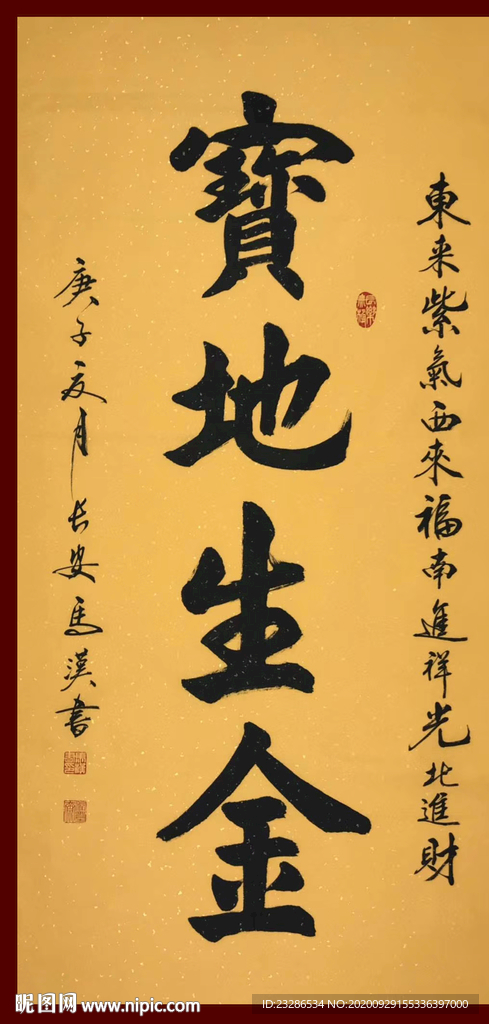 東来紫氣西來福南進祥光北進財
寶地生金
庚子夏月长安馬漢書
昵图网 www.nipic.com
ID:23286534 NO:20200929155336397000